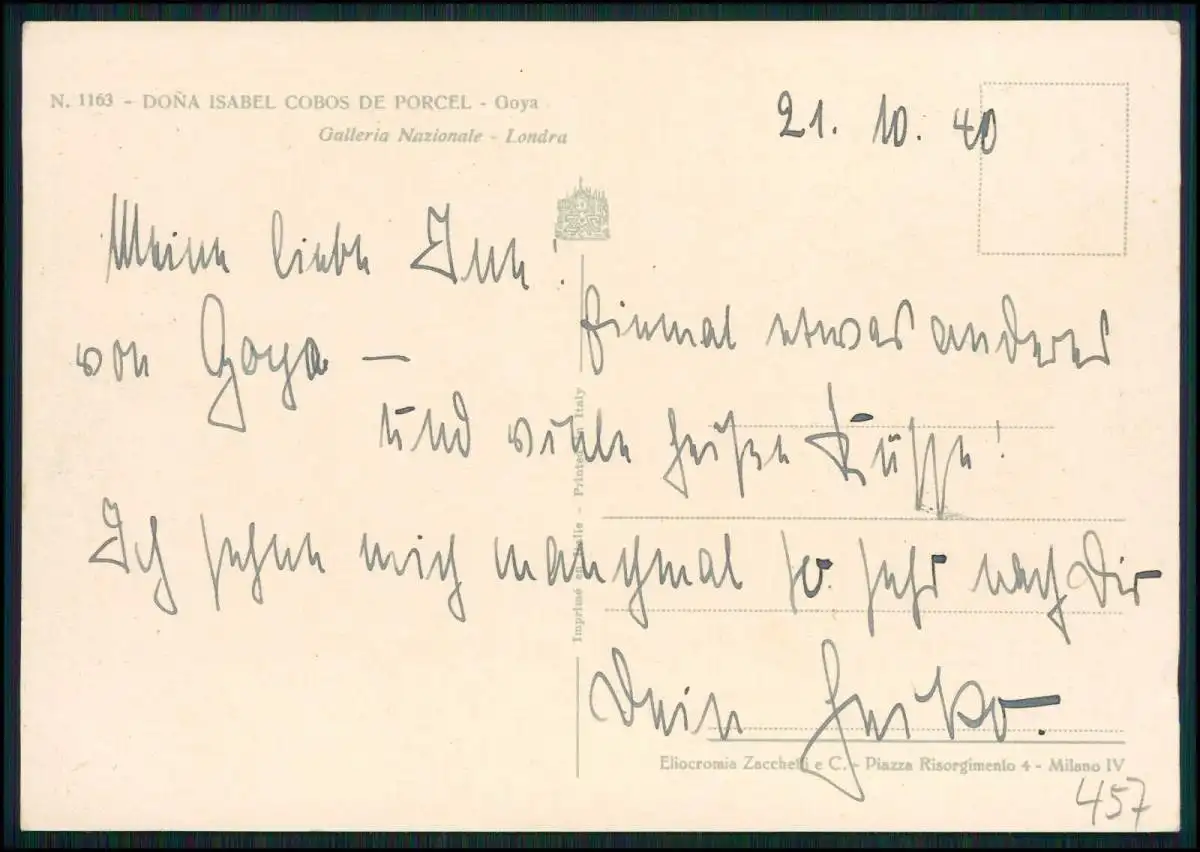 N. 1163 - DOÑA ISABEL COBOS DE PORCEL - Goya
Galleria Nazionale - Londra
21. 10. 40
Meine liebe
Einmal etwas anderes
von Goya —
und viele heißen Küsse!
Ich sehne mich manchmal so sehr nach Dir
Dein Heiko.
Imprimé en Italie - Printed in Italy
Eliocromia Zacchetti e C. - Piazza Risorgimento 4 - Milano IV
457